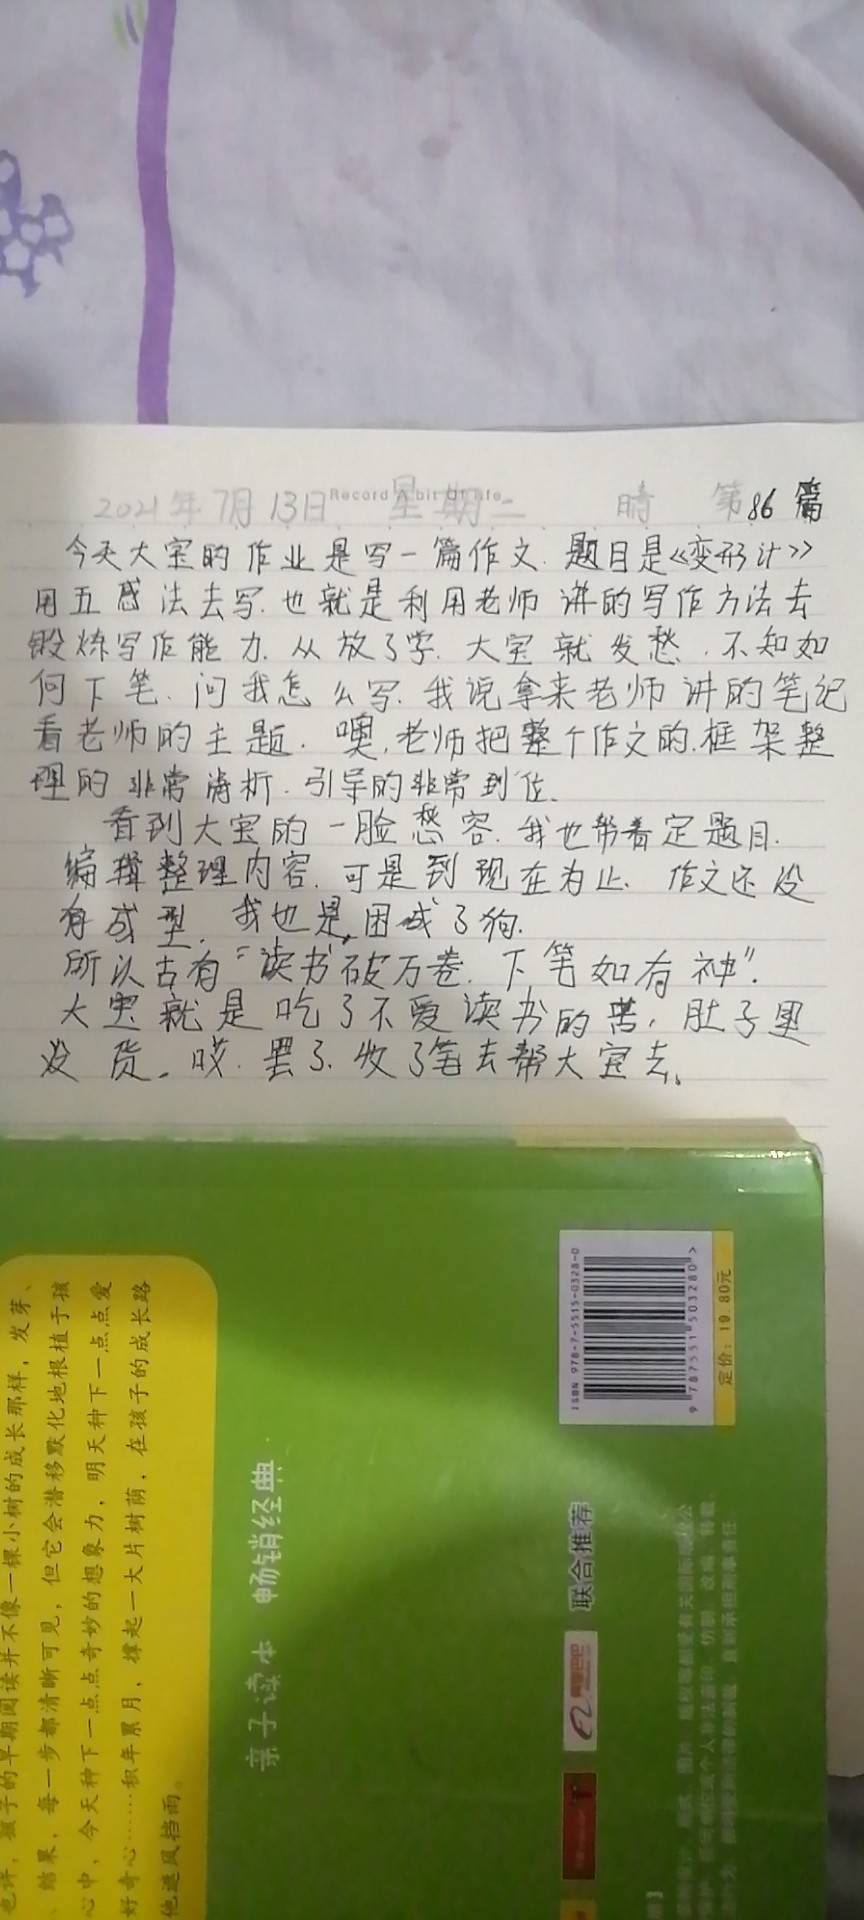 Record A bit Of life
2021年7月13日 星期二 晴 第86篇
今天大宝的作业是写一篇作文.题目是《变形计》
用五感法去写.也就是利用老师讲的写作方法去
锻炼写作能力.从放了学.大宝就发愁.不知如
何下笔、问我怎么写.我说拿来老师讲的笔记
看老师的主题.噢,老师把整个作文的.框架整
理的非常清析.引导的非常到位.
看到大宝的一脸愁容.我也帮着定题目.
编辑整理内容.可是到现在为止.作文还没
有成型.我也是,困成了狗.
所以古有“读书破万卷.下笔如有神”.
大宝就是吃了不爱读书的苦,肚子里
没货。哎.罢了.收了笔去帮大宝去。
ISBN 978-7-5515-0328-0
9 787551 503280 >
定价：19.80元
联合推荐
阿里巴巴
亲子读本 畅销经典
也许，孩子的早期阅读并不像一棵小树的成长那样，发芽、
、结果，每一步都清晰可见，但它会潜移默化地根植于孩
心中，今天种下一点点奇妙的想象力，明天种下一点点爱
好奇心……积年累月，撑起一大片树荫，在孩子的成长路
他遮风挡雨。